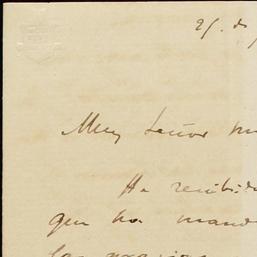 25. de
Muy Señor m
He recibid
que ha mand